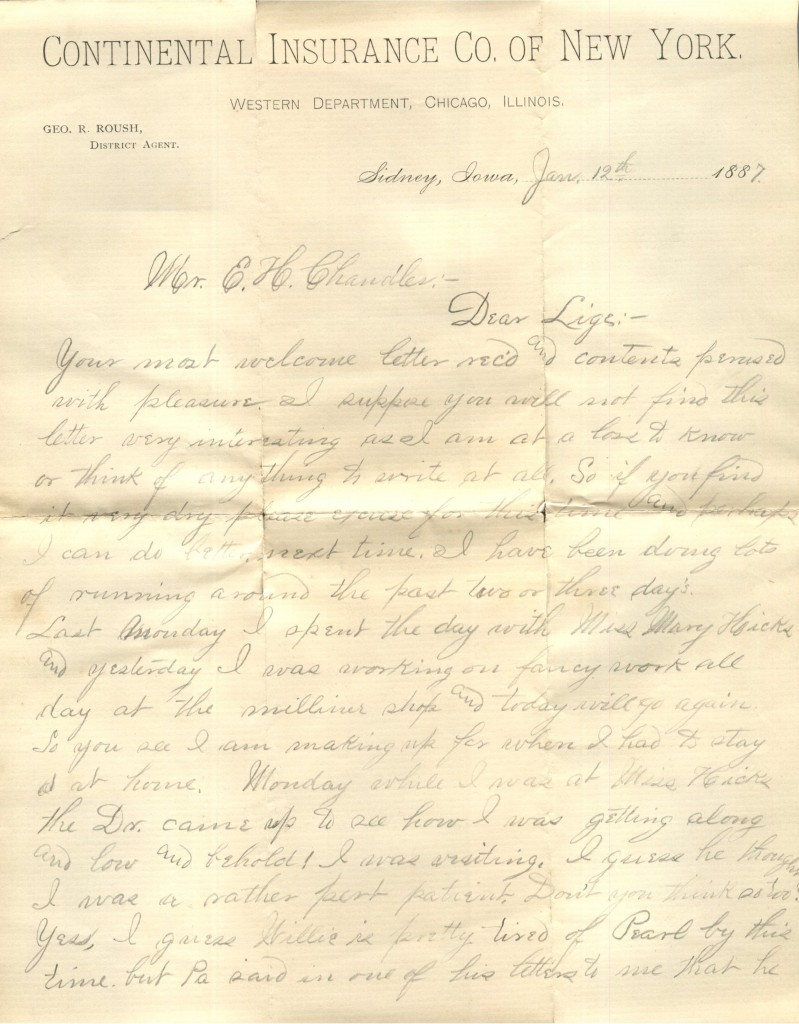 CONTINENTAL INSURANCE CO. OF NEW YORK.
WESTERN DEPARTMENT, CHICAGO, ILLINOIS.
GEO. R. ROUSH,
DISTRICT AGENT.
Sidney, Iowa, Jan. 12th 1887.
Mr. E. H. Chandler:-
Dear Lige:-
Your most welcome letter rec'd and contents perused
with pleasure. I suppose you will not find this
letter very interesting as I am at a loss to know
or think of anything to write at all. So if you find
it very dry please excuse for this time and perhaps
I can do better next time. I have been doing lots
of running around the past two or three day's.
Last Monday I spent the day with Miss Mary Hicks
and yesterday I was working on fancy work all
day at the milliner shop and today will go again.
So you see I am making up for when I had to stay
at home. Monday while I was at Miss Hicks
the Dr. came up to see how I was getting along
and low and behold! I was visiting. I guess he thought
I was a rather pert patient. Don't you think so too?
Yess, I guess Willie is pretty tired of Pearl by this
time. but Pa said in one of his letters to me that he